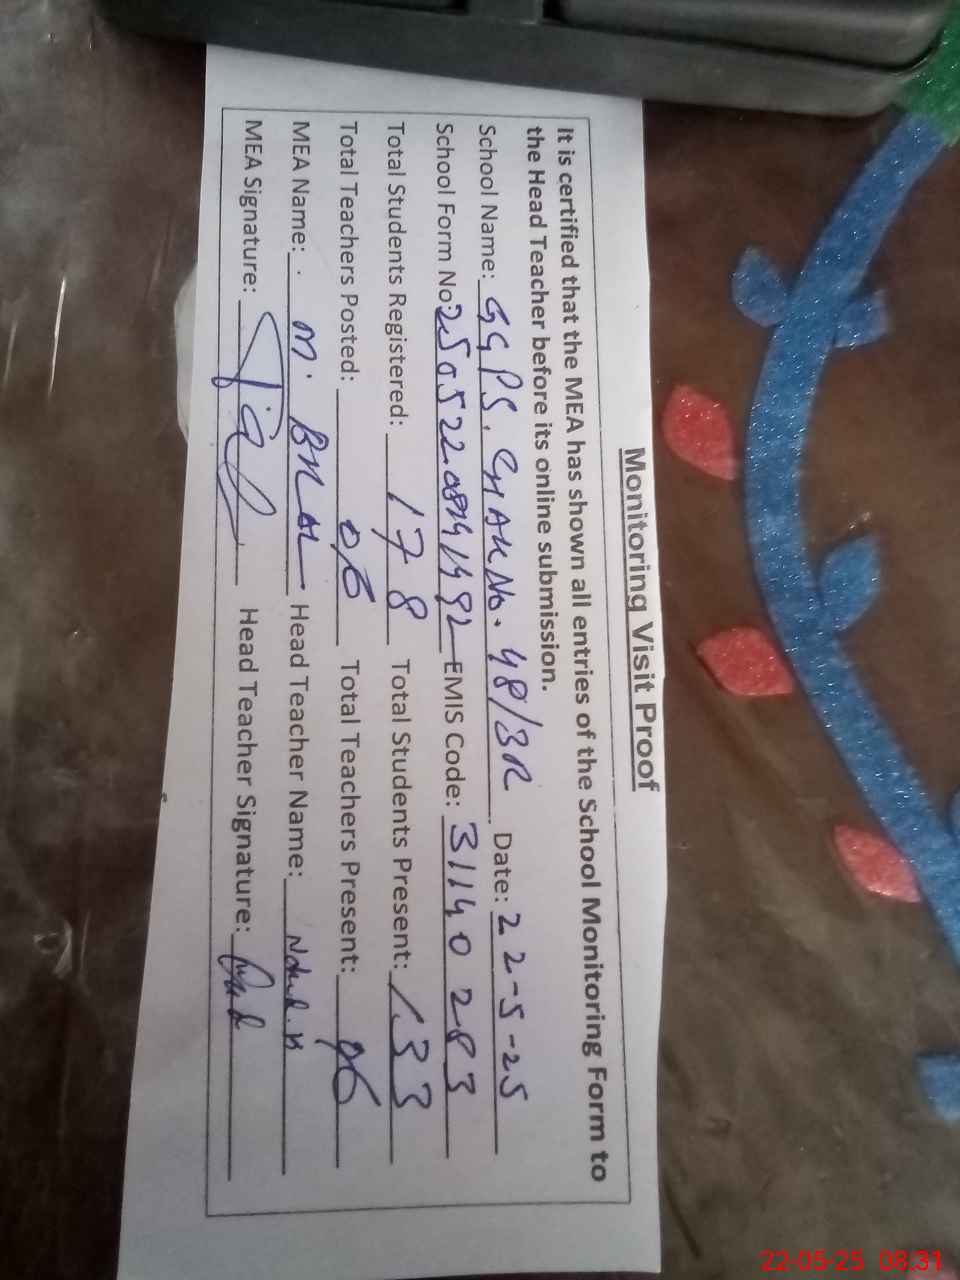 Monitoring Visit Proof
It is certified that the MEA has shown all entries of the School Monitoring Form to
the Head Teacher before its online submission.
School Name: GGPS. CHAK No. 48/3R Date: 22-5-25
School Form No: EMIS Code: 31140283
Total Students Registered: 178 Total Students Present: 133
Total Teachers Posted: 06 Total Teachers Present: 06
MEA Name: M. Head Teacher Name:
MEA Signature: Head Teacher Signature:
22-05-25 08:31